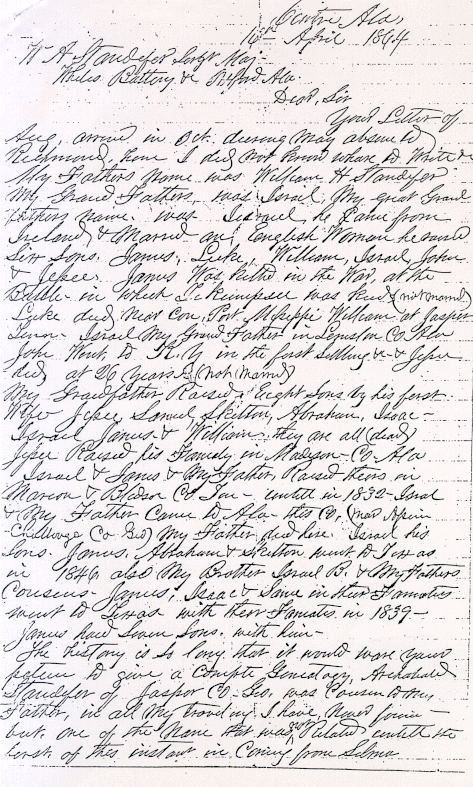 Centre Ala,
16th April 1864
W A Standefer Sergt Maj.
Battery & Ala.
Dear, Sir
Your Letter of
Aug, arrived in Oct. dureing May absence to
Richmond, I did not know whare to write &
My Fathers name was William H Standefer
My Grand Fathers, was Israel, My great Grand
fathers name was he came from
Ireland, & Married an English Woman he raised
Six Sons. James, Luke, William, Israel, John
& Jesse. James Was killed in the War, at the
Battle in which Tekumpsee was (not married)
Luke died, Near Missippi William at Jasper
Tenn. Israel My Grand Father in Co Ala
John Went to Ky in the first Setling & Jesse
died at 26 years (not married)
My Grandfather Raised Eight Sons by his first
Wife Jesse, Samuel, Skelton, Abraham, Isaac-
Israel James & William- they are all (dead)
Jesse Raised his Family in Madison- Co- Ala
Israel & James & My Father Raised theirs in
Marion & Bledsoe Co Ten- untill in 1832- Israel
& My Father Came to Ala- this Co,
My Father died here. Israel his
Sons. James, Abraham & Skelton went to Texas
in 1846, also My Brother Israel B. & My Fathers
Cousens- James, Isaac & their Families
went to Texas with their Families in 1839-
James had Seven Sons. with him-
The history is so long that it would ware your
patien to give a Compte Genealogy, Archabald
Standefer of Jaspor Co- Geo, was Cousin to My
Father, in all My traveling I have Never
but one of the Name that was, Related untill the
of this instant in Coming from Selma